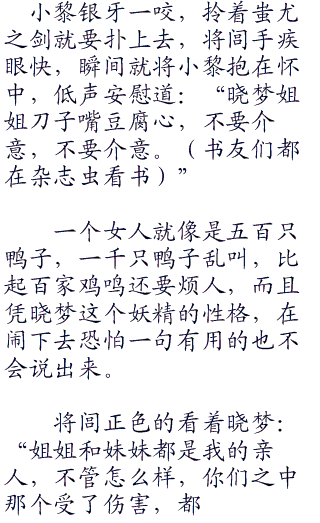 小黎银牙一咬，拎着蚩尤
之剑就要扑上去，将闾手疾
眼快，瞬间就将小黎抱在怀
中，低声安慰道：“晓梦姐
姐刀子嘴豆腐心，不要介
意，不要介意。（书友们都
在杂志虫看书）”
一个女人就像是五百只
鸭子，一千只鸭子乱叫，比
起百家鸡鸣还要烦人，而且
凭晓梦这个妖精的性格，在
闹下去恐怕一句有用的也不
会说出来。
将闾正色的看着晓梦：
“姐姐和妹妹都是我的亲
人，不管怎么样，你们之中
那个受了伤害，都